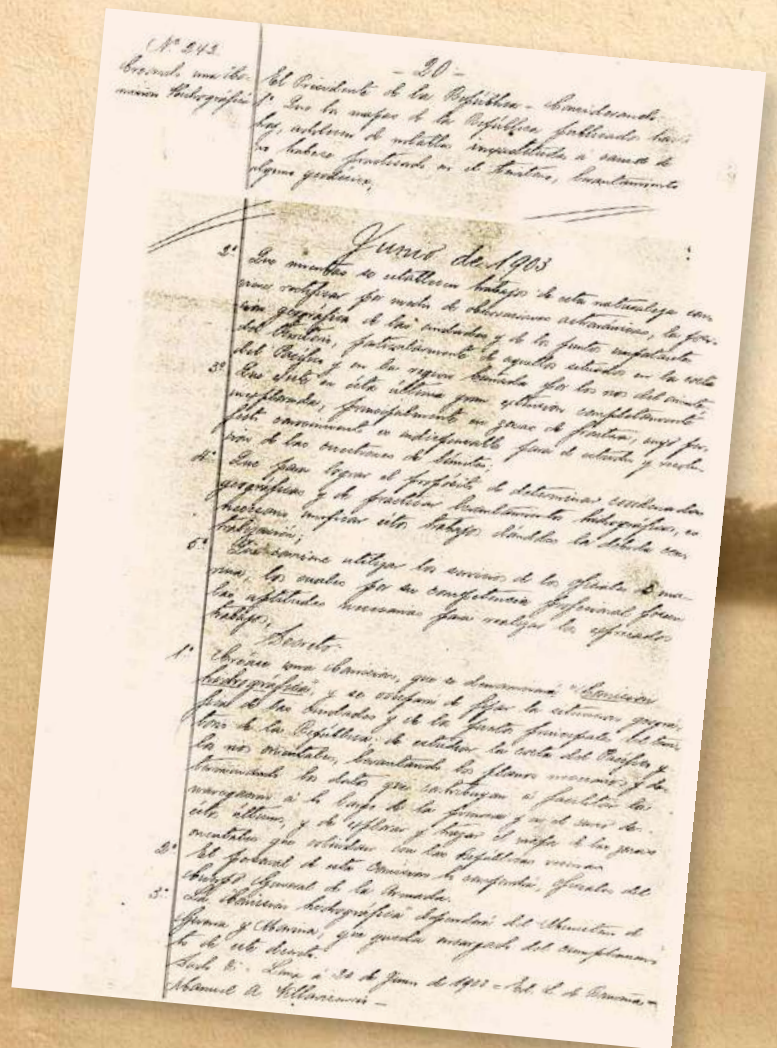 Nº 242.
Creando una Co-
misión Hidrográfica
- 20 -
El Presidente de la República - Considerando:
1º Que los mapas de la República publicados hasta
hoy, adolecen de notables inexactitudes a causa de
no haberse practicado en el territorio, levantamiento
alguno geodésico;
Junio de 1903
2º Que mientras se establecen trabajos de esta naturaleza con-
viene rectificar por medio de observaciones astronómicas, la posi-
ción geográfica de las ciudades y de los puntos importantes
del territorio, particularmente de aquellos situados en la costa
del Pacífico y en la región bañada por los ríos del oriente;
3º Que existe en ésta última gran extensión completamente
inexplorada, principalmente en zonas de frontera, cuyo per-
fecto conocimiento es indispensable para el estudio y resolu-
ción de las cuestiones de límites;
4º Que para lograr el propósito de determinar coordenadas
geográficas y de practicar levantamientos hidrográficos, es
necesario unificar estos trabajos dándoles la debida cen-
tralización;
5º Que conviene utilizar los servicios de los oficiales de ma-
rina, los cuales por su competencia profesional poseen
las aptitudes necesarias para realizar los expresados
trabajos;
Decreto:
1º Créase una Comisión, que se denominará "Comisión
hidrográfica", y se ocupará de fijar la situación geográ-
fica de las ciudades y de los puntos principales del terri-
torio de la República; de estudiar la costa del Pacífico y
los ríos orientales, levantando los planos necesarios y de-
terminando los datos que contribuyan a facilitar la
navegación a lo largo de la primera y en el curso de
éstos últimos, y de explorar y hacer el mapa de las zonas
orientales que colindan con las Repúblicas vecinas
2º El personal de esta Comisión lo compondrá, oficiales del
Cuerpo General de la Armada.
3º La "Comisión hidrográfica" dependerá del Ministerio de
Guerra y Marina, que queda encargado del cumplimien-
to de este decreto.
Lima a 20 de Junio de 1903 =
Manuel A Villavicencio -